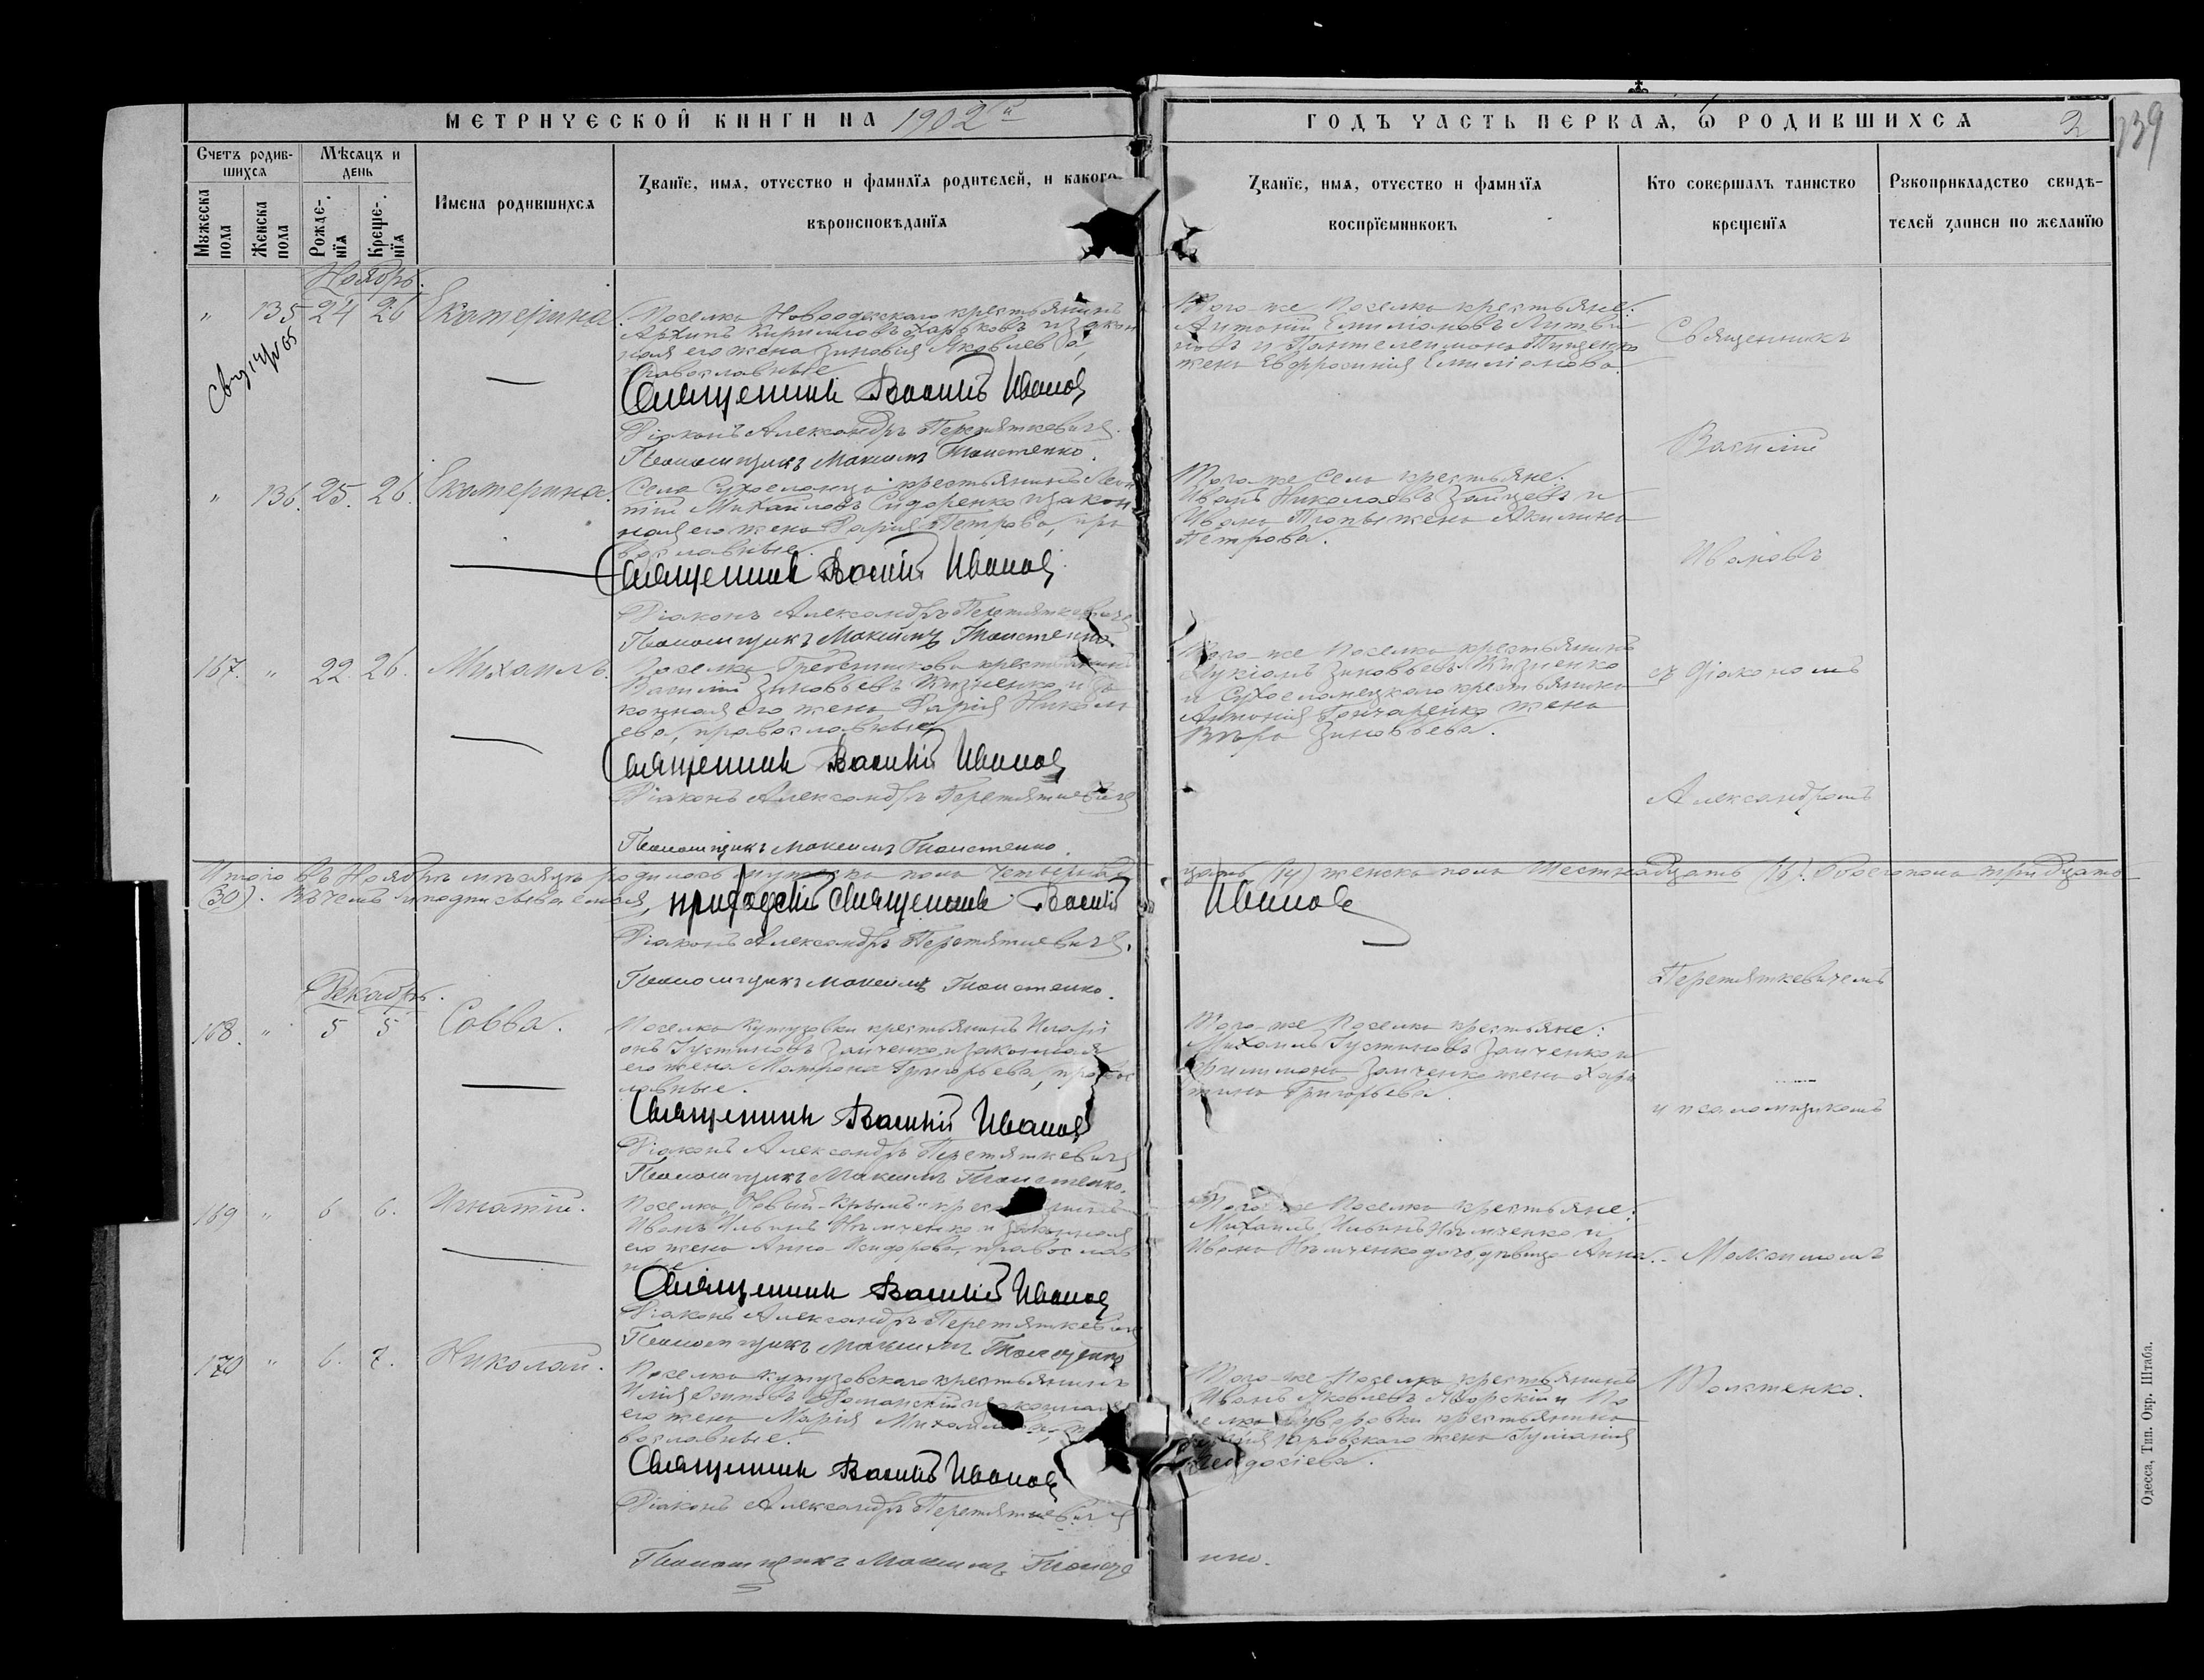 МЕТРИЧЕСКОЙ КНИГИ НА 1902й
ГОДЪ ЧАСТЬ ПЕРВАЯ, Ѡ РОДИВШИХСЯ 2
139
Счетъ родив-
шихся
Мѣсяцъ и
день
Мужеска
пола
Женска
пола
Рожде-
нїя
Креще-
нїя
Имена родившихся
Званїе, имя, отчество и фамилїя родителей, и какого
вѣроисповѣданїя
Званїе, имя, отчество и фамилїя
воспрїемниковъ
Кто совершалъ таинство
крещенїя
Рукоприкладство свидѣ-
телей записи по желанїю
Ноябрь.
" 135 24 26 Екатерина.
Поселка Новоодесскаго крестьянинъ
Архипъ Кирилловъ Харьковъ и закон
ная его жена Зиновія Яковлева,
православные
Священникъ Василій Ивановъ
Діаконъ Александръ Перетяткевичъ.
Псаломщикъ Максимъ Толстенко.
Того-же Поселка крестьяне:
Антоній Емиліановъ Литви
новъ и Пантелеимона Тищенко
жена Евфросинія Емиліанова.
Священникъ
Василій
" 136. 25. 26. Екатерина.
Села Сухоеланца крестьянинъ Леон
тій Михайловъ Сидоренко и закон
ная его жена Дарія Петрова, пра
вославные.
Священникъ Василій Ивановъ
Діаконъ Александръ Перетяткевичъ
Псаломщикъ Максимъ Толстенко
Того-же Села крестьяне:
Иванъ Николаевъ Зайцевъ и
Ивана жена Акилина
Петрова.
Ивановъ
167. " 22 26. Михаилъ.
Поселка Гребенникова крестьянинъ
Василій Зиновьевъ Жизненко и за
конная его жена Дарія Никола
ева, православные
Священникъ Василій Ивановъ
Діаконъ Александръ Перетяткевичъ
Псаломщикъ Максимъ Толстенко.
Того-же Поселка крестьянинъ
Зиновьевъ Жизненко
и Сухоеланецкаго крестьянина
Антонія Гончаренко жена
Вѣра Зиновьева.
съ діакономъ
Александромъ
Итого въ Ноябрѣ мѣсяцѣ родилось мужска пола четырнад
цать (14) женска пола шестнадцать (16). Обоего пола тридцать
(30). Въ чемъ и подписываемся, приходскій священникъ Василій Ивановъ
Діаконъ Александръ Перетяткевичъ.
Псаломщикъ Максимъ Толстенко.
Перетяткевичемъ
Декабрь.
168. " 5 5 Савва.
Поселка Кутузовки крестьянинъ Иларі
онъ Іустиновъ Заиченко и законная
его жена Матрона Григорьева, правос
лавные.
Священникъ Василій Ивановъ
Діаконъ Александръ Перетяткевичъ
Псаломщикъ Максимъ Толстенко.
Того-же Поселка крестьяне:
Михаилъ Іустиновъ Заиченко и
Филимона Заиченко жена Хари
тина Григорьева.
и псаломщикомъ
169 " 6 6. Игнатій.
Поселка "Новый-Крымъ"
Иванъ Ильинъ Нѣмченко и законная
его жена Анна Исидорова, православ
ные
Священникъ Василій Ивановъ
Діаконъ Александръ Перетяткевичъ
Псаломщикъ Максимъ Толстенко
Того-же Поселка крестьяне:
Михаилъ Ильинъ Нѣмченко и
Ивана Нѣмченко дочь, дѣвица Анна.
Максимомъ
170 " 6. 7. Николай.
Поселка Кутузовскаго крестьянинъ
Илія и законная
его жена Марія
вославные.
Священникъ Василій Ивановъ
Діаконъ Александръ Перетяткевичъ
Псаломщикъ Максимъ Толсте нко.
Того-же Поселка крестьянинъ
Иванъ Яковлевъ и По
селка Суворовки крестьянина
жена Іуліанія
Толстенко.
Одесса, Тип. Окр. Штаба.